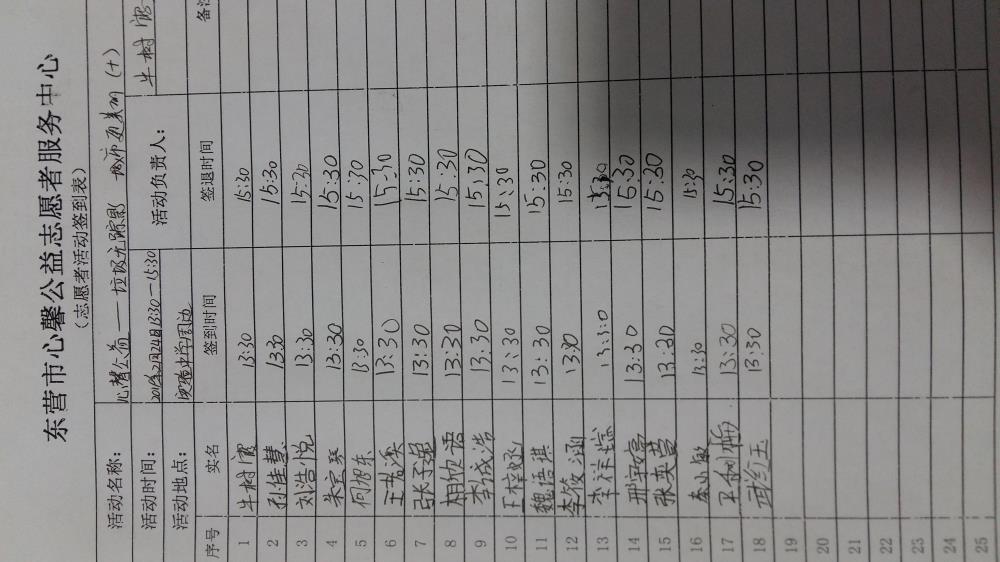 东营市心馨公益志愿者服务中心
(志愿者活动签到表)
活动名称: 心馨公益——垃圾无踪影 城市更美丽(十)
活动时间: 24日13:30—15:30 活动负责人: 牛树
活动地点: 实验中学周边
序号 实名 签到时间 签退时间 备注
1 牛树 13:30 15:30
2 孙佳慧 13:30 15:30
3 刘浩悦 13:30 15:30
4 朱宝琴 13:30 15:30
5 何旭东 13:30 15:30
6 王君溪 13:30 15:30
7 张子强 13:30 15:30
8 相欣语 13:30 15:30
9 李成浩 13:30 15:30
10 王梓 13:30 15:30
11 魏语琪 13:30 15:30
12 李筱涵 13:30 15:30
13 李 13:30 15:30
14 邢宇婷 13:30 15:30
15 张奕萱 13:30 15:30
16 秦小敏 13:30 15:30
17 卫利 13:30 15:30
18 武红玉 13:30 15:30
19
20
21
22
23
24
25